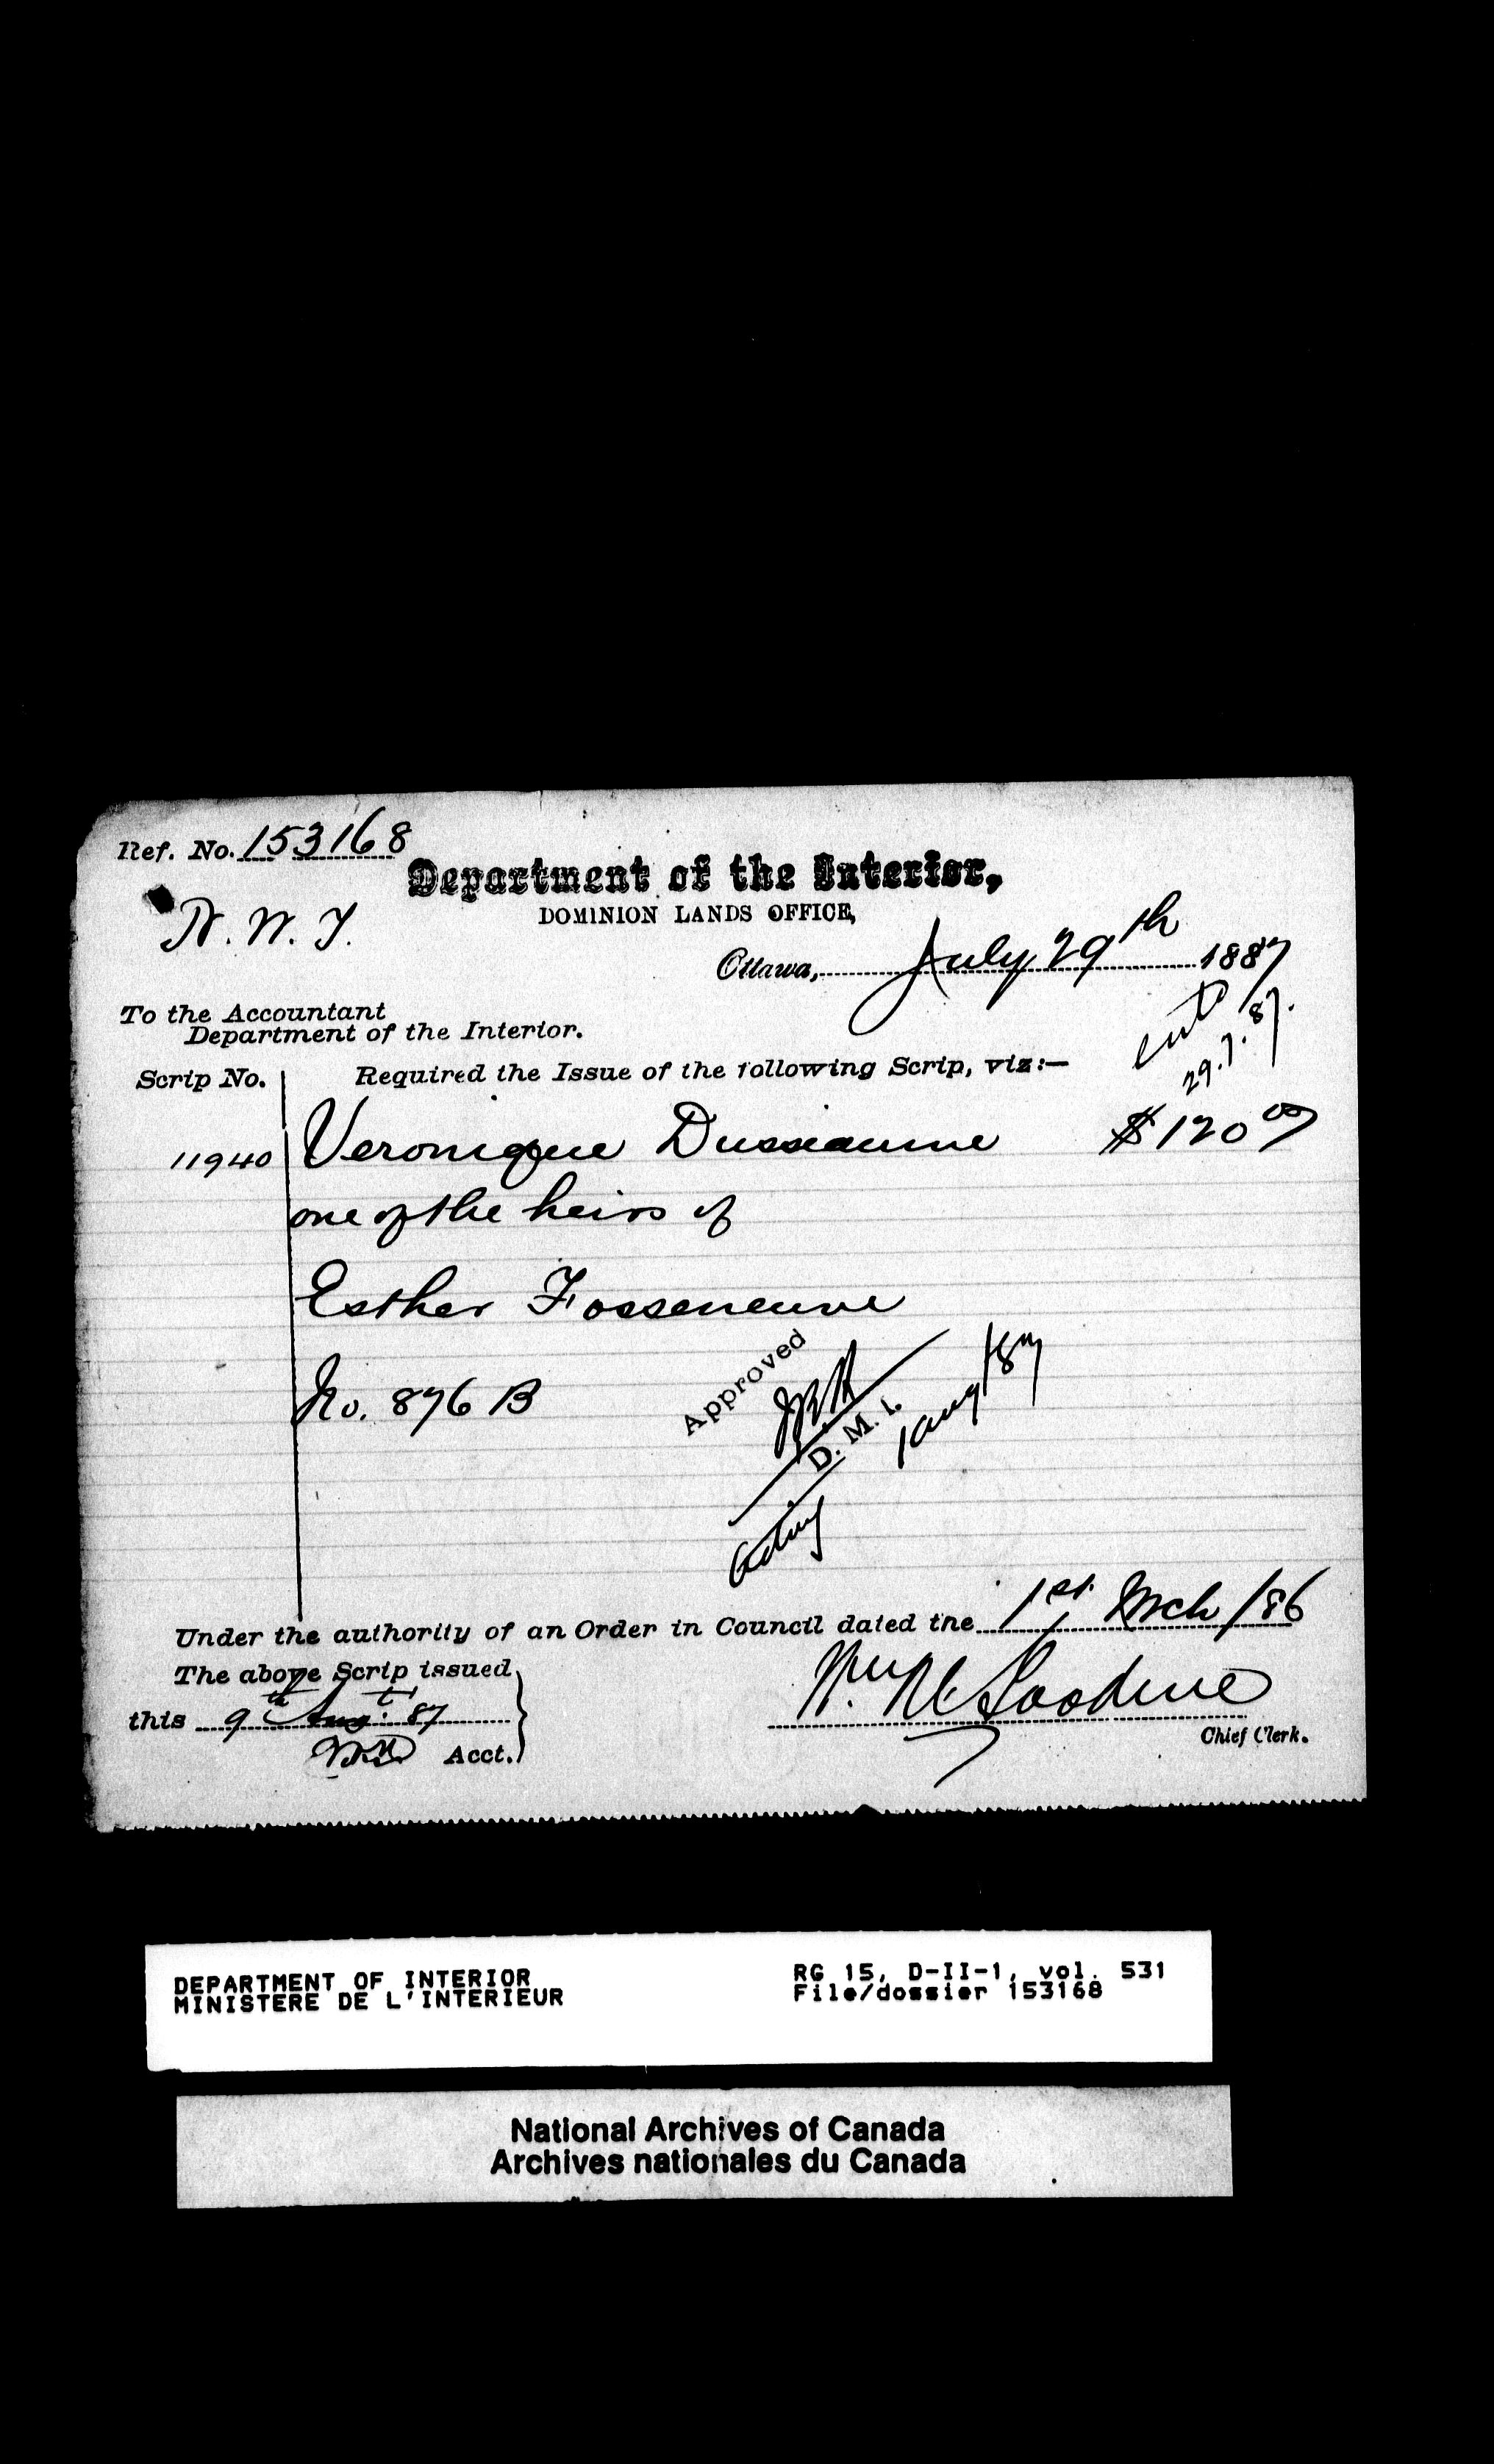 Ref. No. 153168
Department of the Interior,
DOMINION LANDS OFFICE,
N. W. T.
Ottawa, July 29th 1887
To the Accountant
Department of the Interior.
29.7.87.
Scrip No. Required the Issue of the following Scrip, viz:—
11940 Veronique Dussiaume $120 00
one of the heirs of
Esther Fosseneuve
No. 876 B
Approved
D. M. I.
1 Aug/87
Acting
Under the authority of an Order in Council dated the 1st. Mch/86
The above Scrip issued
this 9th Augt. 87
Acct.
Chief Clerk.
DEPARTMENT OF INTERIOR RG 15, D-II-1, vol. 531
MINISTERE DE L'INTERIEUR File/dossier 153168
National Archives of Canada
Archives nationales du Canada